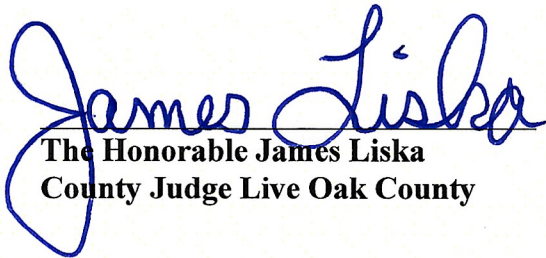 James Liska
The Honorable James Liska
County Judge Live Oak County